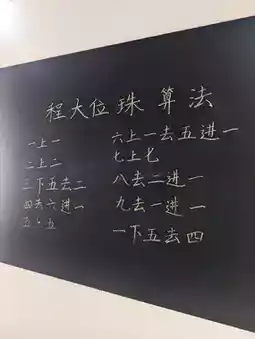 程大位珠算法
一上一
二上二
三下五去二
四去六进一
五上五
六上一去五进一
七上七
八去二进一
九去一进一
一下五去四